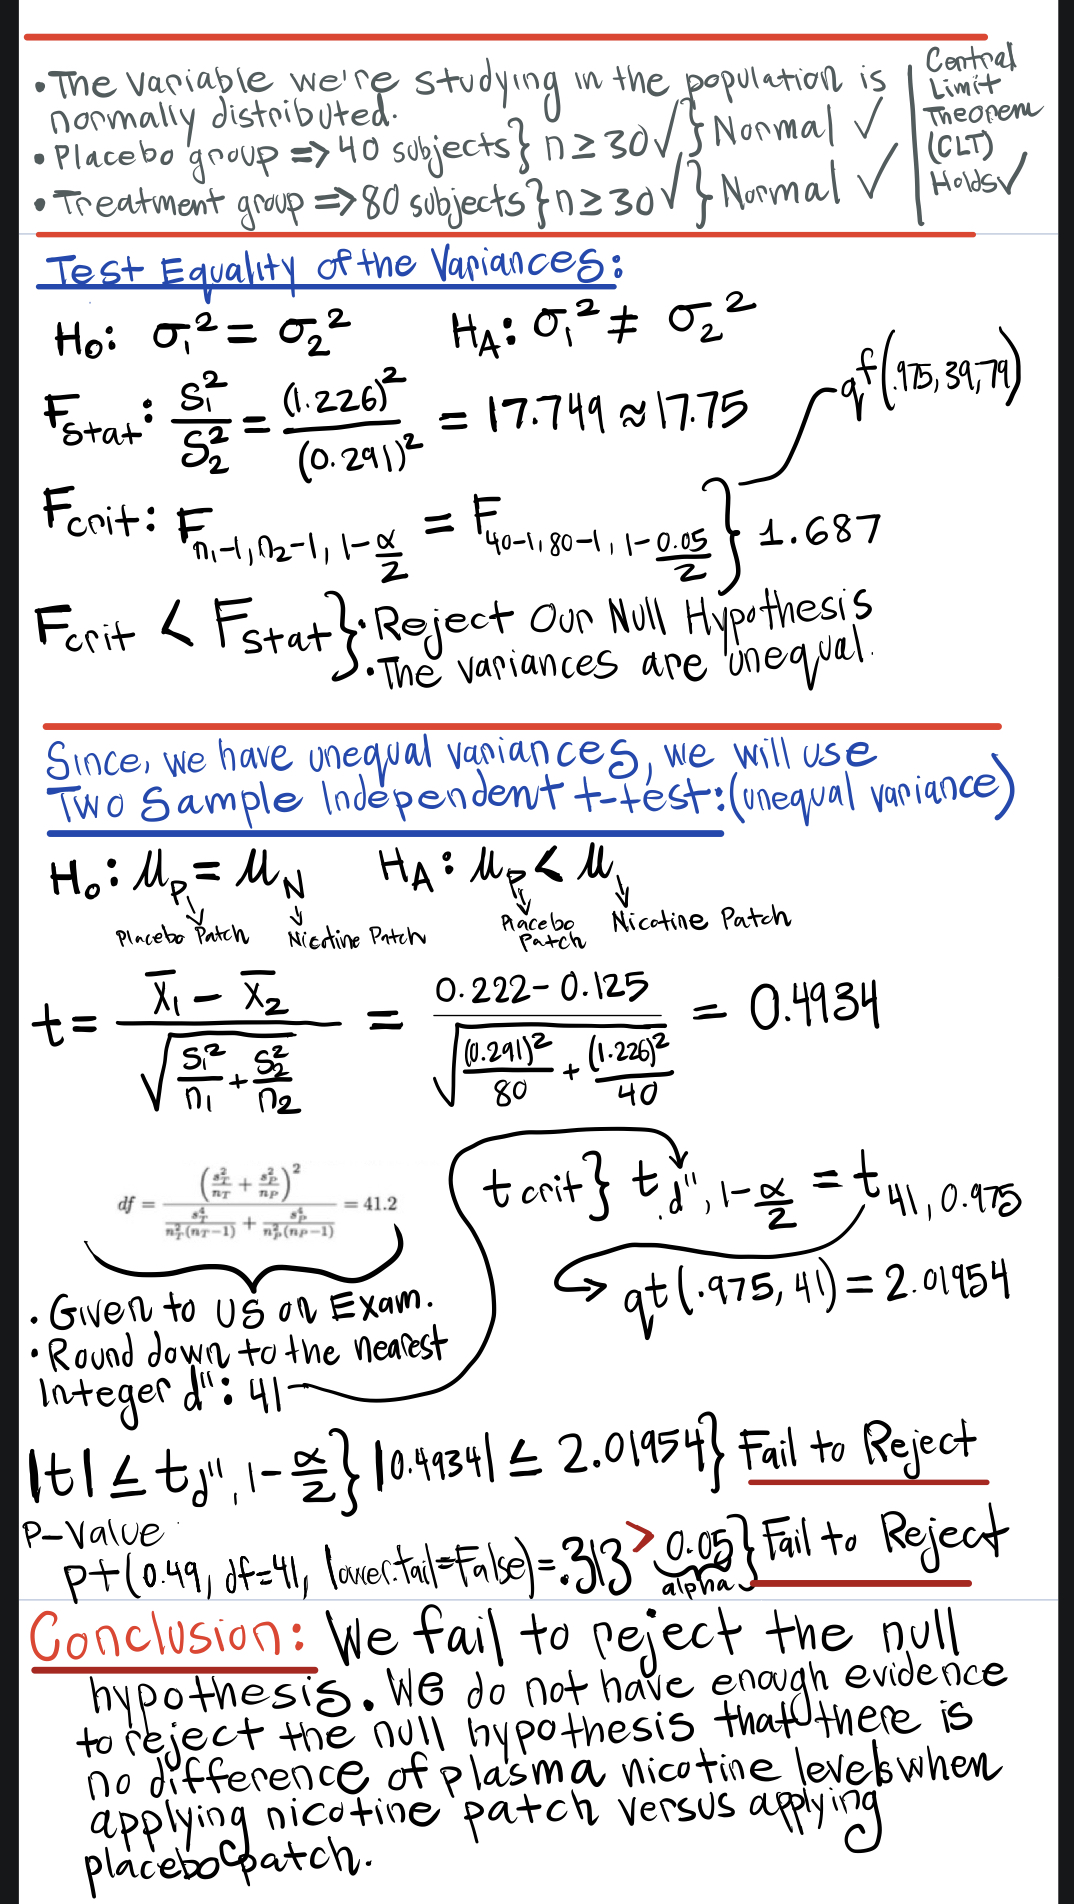 • The variable we're studying in the population is
normally distributed.
• Placebo group => 40 subjects} n ≥ 30 √} Normal ✓
• Treatment group => 80 subjects} n ≥ 30 √} Normal ✓
Central
Limit
Theorem
(CLT)
Holds ✓
Test Equality of the Variances:
H₀: σ₁² = σ₂² H_A: σ₁² ≠ σ₂²
F_stat: S₁²/S₂² = (1.226)²/(0.291)² = 17.749 ≈ 17.75
qf(.975, 39, 79)
F_crit: F_n₁-1, n₂-1, 1-α/2 = F_40-1, 80-1, 1-0.05/2 } 1.687
F_crit < F_stat} • Reject Our Null Hypothesis
• The variances are unequal.
Since, we have unequal variances, we will use
Two Sample Independent t-test: (unequal variance)
H₀: μ_P = μ_N H_A: μ_P < μ
Placebo Patch Nicotine Patch Placebo Patch Nicotine Patch
t = (x̄₁ - x̄₂)/√(S₁²/n₁ + S₂²/n₂) = (0.222 - 0.125)/√((0.291)²/80 + (1.226)²/40) = 0.4934
df = (s_T²/n_T + s_P²/n_P)² / (s_T⁴/(n_T²(n_T-1)) + s_P⁴/(n_P²(n_P-1))) = 41.2
t crit} t_d'', 1-α/2 = t_41, 0.975
qt(.975, 41) = 2.01954
• Given to us on Exam.
• Round down to the nearest
Integer d'': 41
|t| ≤ t_d'', 1-α/2 } |0.4934| ≤ 2.01954} Fail to Reject
P-Value
pt(0.49, df=41, lower.tail=False) = .313 > 0.05} Fail to Reject
alpha
Conclusion: We fail to reject the null
hypothesis. We do not have enough evidence
to reject the null hypothesis that there is
no difference of plasma nicotine levels when
applying nicotine patch versus applying
placebo patch.